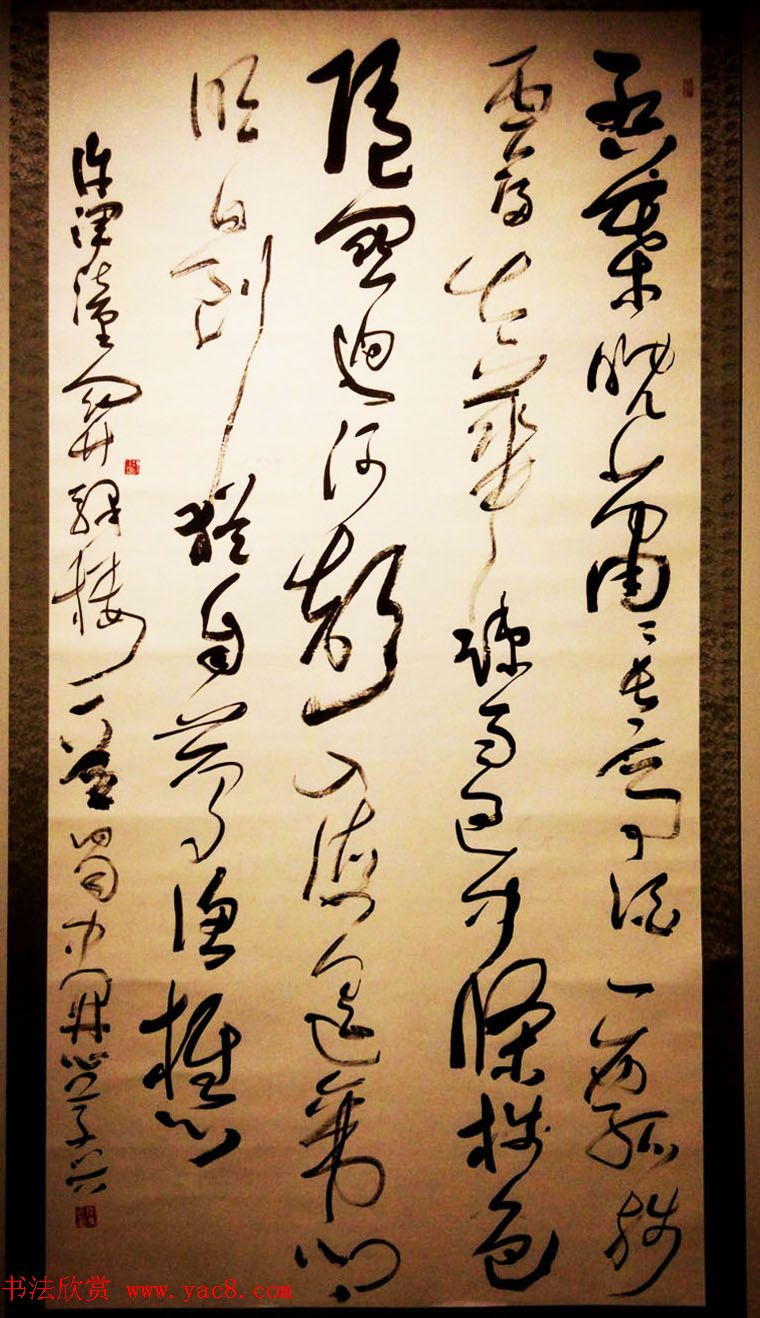 紅葉晚蕭〻長亭酒一瓢殘
雲歸太華疏雨過中條樹色
隨關迥河聲入海遥帝鄉
明日到猶自夢漁樵
許渾潼關驛樓一首蜀中
书法欣赏 www.yac8.com